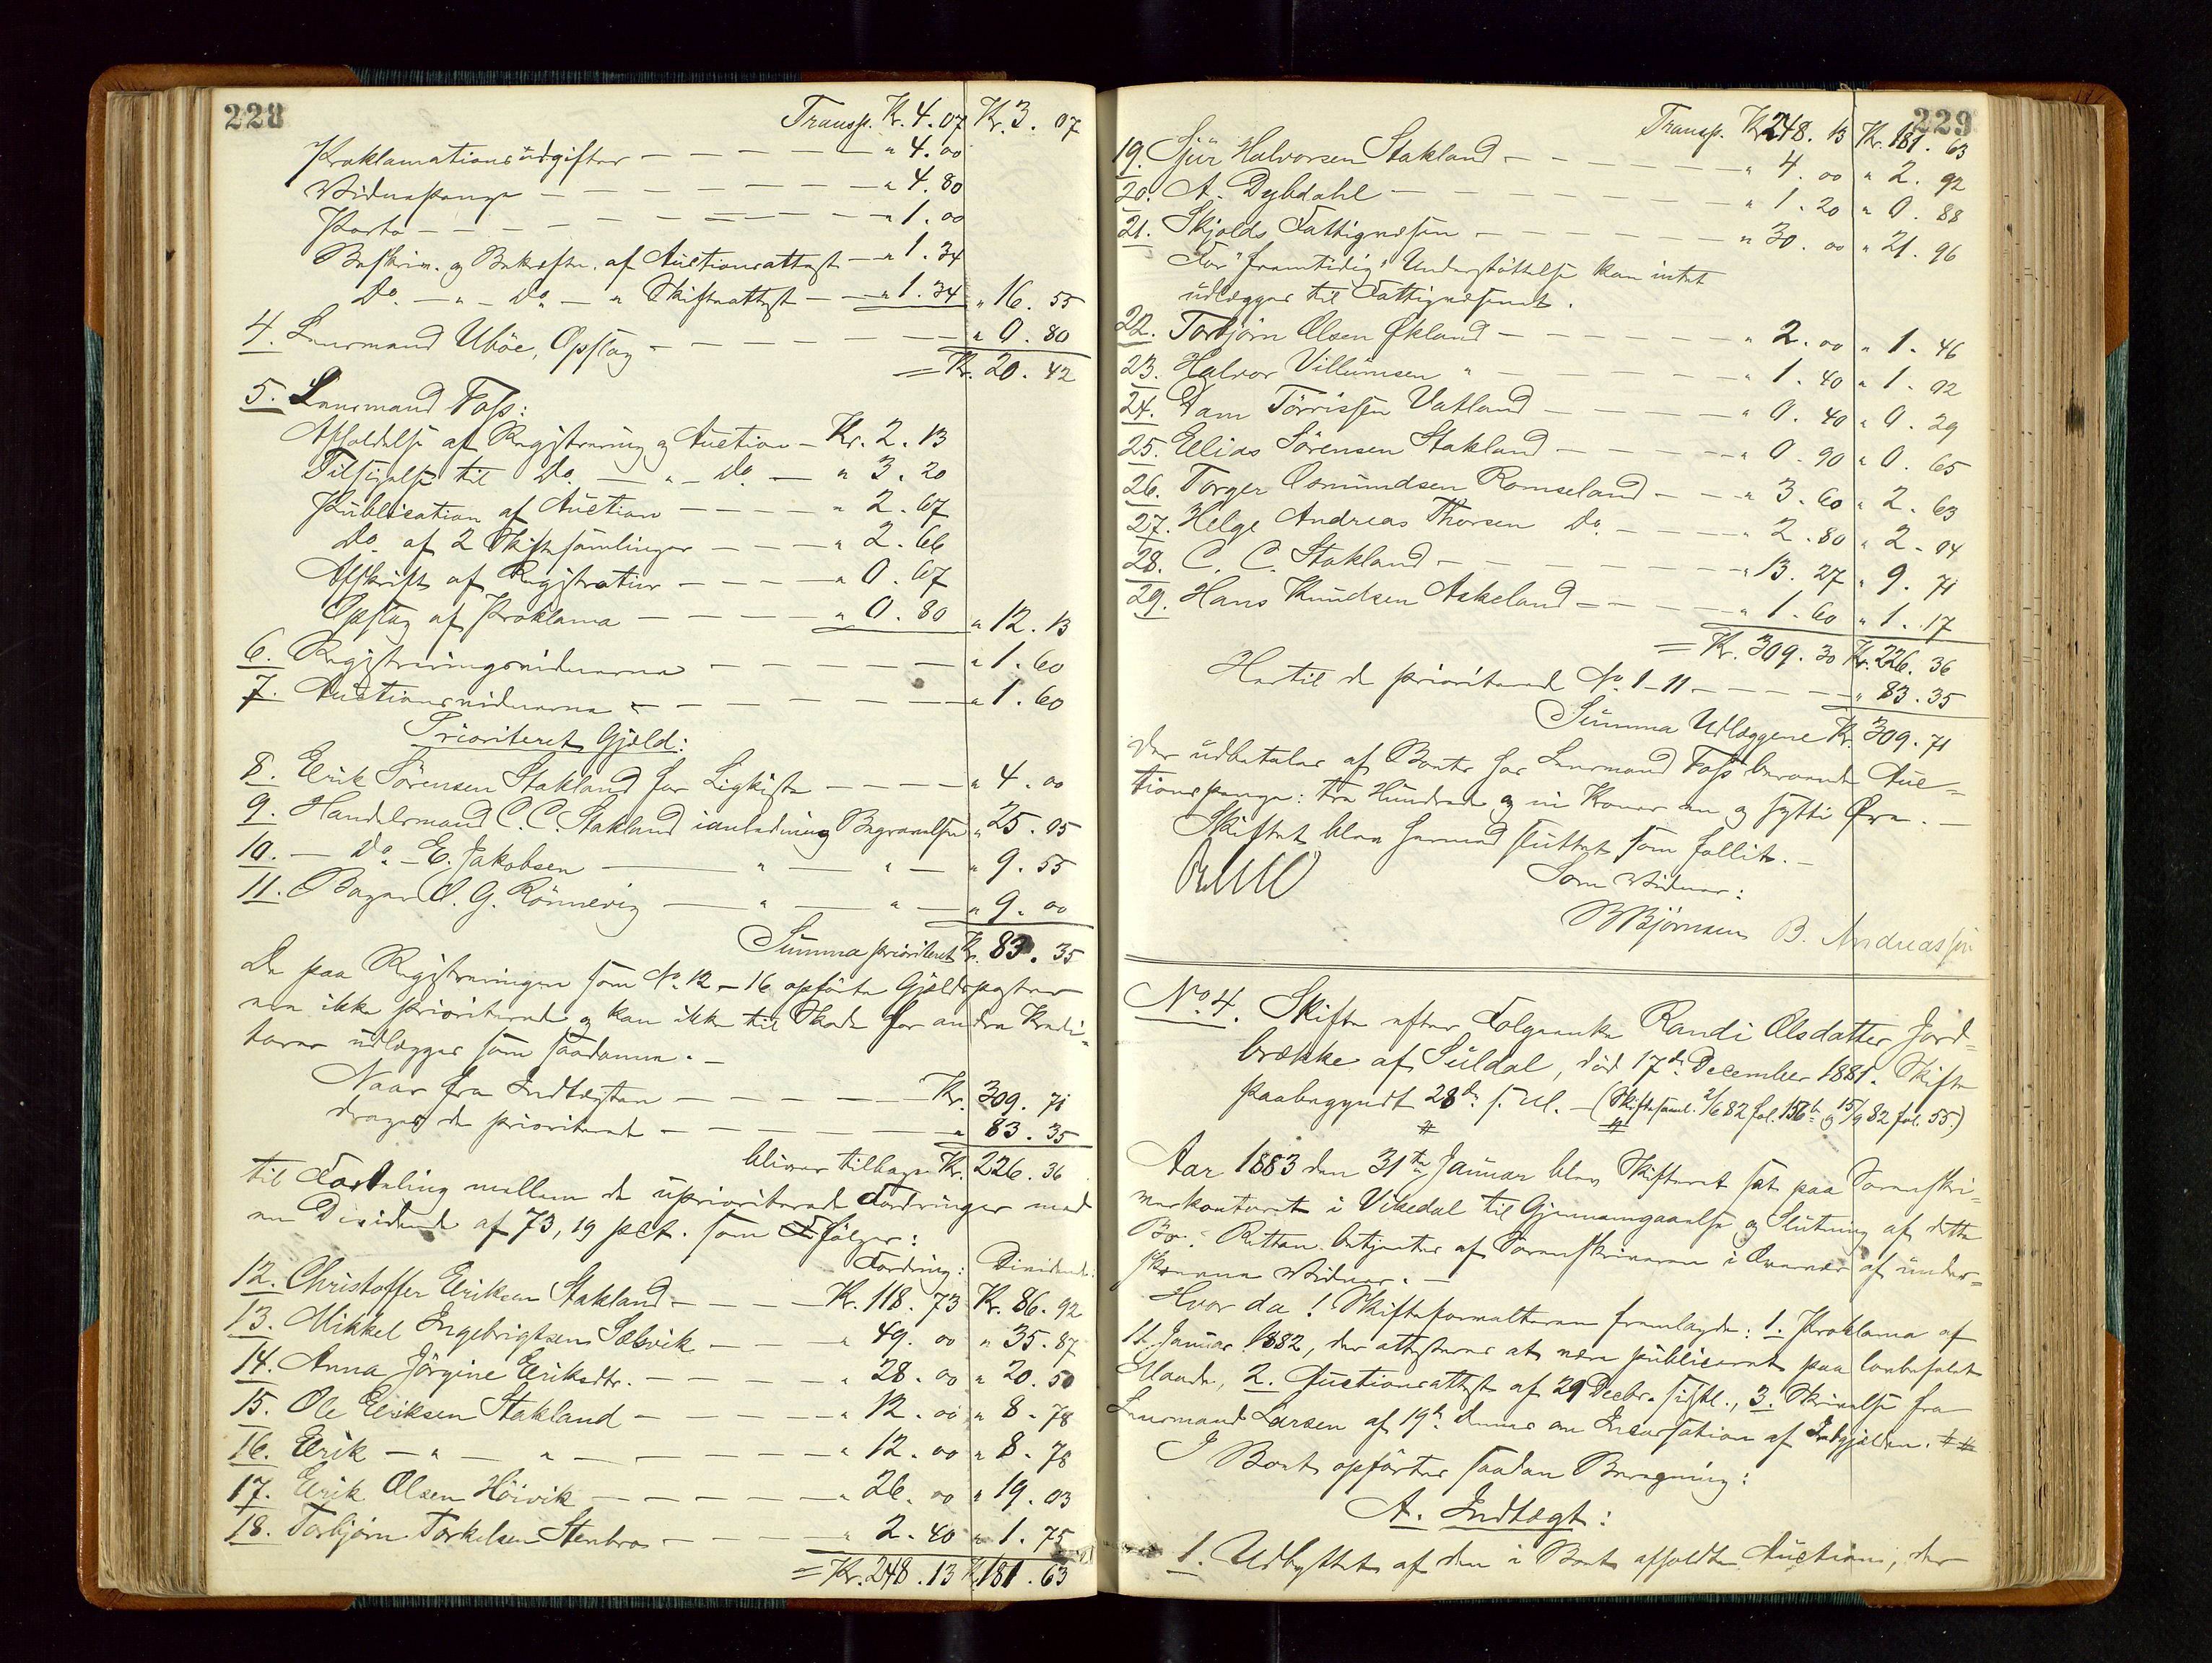 228
Transp. Kr. 4.07 Kr. 3.07
Proklamationsudgifter — — — — " 4.00
Vidnepenge — — — — — " 4.80
Porto — — — — — — " 1.00
Beskriv. og Bekræftn. af Auctionsattest — " 1.34
Do. — " — Do. — " Skifteattest — — " 1.34 " 16.55
4. Lensmand Ubøe, Opslag — — — — — " 0.80
= Kr. 20.42
5. Lensmand Foss:
Afholdelse af Registrering og Auction — Kr. 2.13
Tilsigelse til Do. — " — Do. — " 3.20
Publication af Auction — — — — " 2.67
Do. af 2 Skiftesamlinger — — — " 2.66
Afskrift af Registratur — — — — " 0.67
Opslag af Proklama — — — — " 0.80 " 12.13
6. Registreringsvidnerne — — — — — " 1.60
7. Auctionsvidnerne — — — — — — " 1.60
Prioriteret Gjæld:
8. Erik Sørensen Stakland for Ligkiste — — — — " 4.00
9. Handelsmand C. C. Stakland i anledning Begravelsen " 25.05
10. — Do. — E. Jakobsen — " — " — " 9.55
11. Bager O. G. Rönnevig — " — " — " 9.00
Summa prioriteret Kr. 83.35
De paa Registreringen som No. 12 – 16 opførte Gjældsposter
ere ikke prioriterede og kan ikke til Skade for andre Kredi-
torer udlægges som saadanne. —
Naar fra Indtægten — — — — — Kr. 309.71
drages de prioriterede — — — — — " 83.35
bliver tilbage Kr. 226.36
til Fordeling mellem de uprioriterede Fordringer med
en Dividende af 73,19 pCt. som følger:
Fordring: Dividende:
12. Christoffer Eriksen Stakland — — — Kr. 118.73 Kr. 86.92
13. Mikkel Ingebrigtsen Sælsvik — — " 49.00 " 35.87
14. Anna Jörgine Eriksdtr. — — — — " 28.00 " 20.50
15. Ole Eriksen Stakland — — — — " 12.00 " 8.78
16. Erik — " — " — — — — " 12.00 " 8.78
17. Erik Olsen Höivik — — — — — " 26.00 " 19.03
18. Torbjørn Torkelsen Stenbro — — — " 2.40 " 1.75
= Kr. 248.13 Kr. 181.63
229
Transp. Kr. 248.13 Kr. 181.63
19. Sjur Halvorsen Stakland — — — — " 4.00 " 2.92
20. A. Dybdahl — — — — — — " 1.20 " 0.88
21. Skjolds Fattigvæsen — — — — — " 30.00 " 21.96
For "fremtidig" Understøttelse kan intet
udlægges til Fattigvæsenet.
22. Torbjörn Olsen Økland — — — — " 2.00 " 1.46
23. Halvor Villumsen " — — — — " 1.40 " 1.02
24. Dam Törrissen Vatland — — — — " 0.40 " 0.29
25. Elias Sörensen Stakland — — — — " 0.90 " 0.65
26. Torger Osmundsen Romseland — — " 3.60 " 2.63
27. Helge Andreas Thorsen Do. — — — " 2.80 " 2.04
28. C. C. Stakland — — — — — " 13.27 " 9.71
29. Hans Knudsen Askeland — — — — " 1.60 " 1.17
= Kr. 309.30 Kr. 226.36
Hertil de prioriterede No. 1–11 — — — — " 83.35
Summa Udlæggene Kr. 309.71
der udbetales af Boets hos Lensmand Foss beroende Auc-
tionspenge: tre Hundrede og ni Kroner en og sytti Øre. —
Skiftet blev hermed sluttet som fallit. —
Som Vidner:
BBjörnsen B. Andreassen
No. 4. Skifte efter Folgeenke Randi Olsdatter Jord-
brække af Suldal, död 17de December 1881. Skifte
paabegyndt 28de s. M. — (Skiftesaml. 2/6 82 fol. 156b og 15/9 82 fol. 55.)
Aar 1883 den 31te Januar blev Skifteret sat paa Sorenskri-
verkontoret i Vikedal til Gjennemgaaelse og Slutning af dette
Bo. Retten betjentes af Sorenskriveren i Overvær af under-
skrevne Vidner. —
Hvor da! Skifteforvalteren fremlagde: 1. Proklama af
11. Januar 1882, der attesteres at være publiceret paa lovbefalet
Maade, 2. Auctionsattest af 29 Decbr. sidstl., 3. Skrivelse fra
Lensmand Larsen af 19de dennes om Incassation af Indgjælden.
I Boet opførtes saadan Beregning:
A. Indtægt:
1. Udbyttet af den i Boet afholdte Auction, der